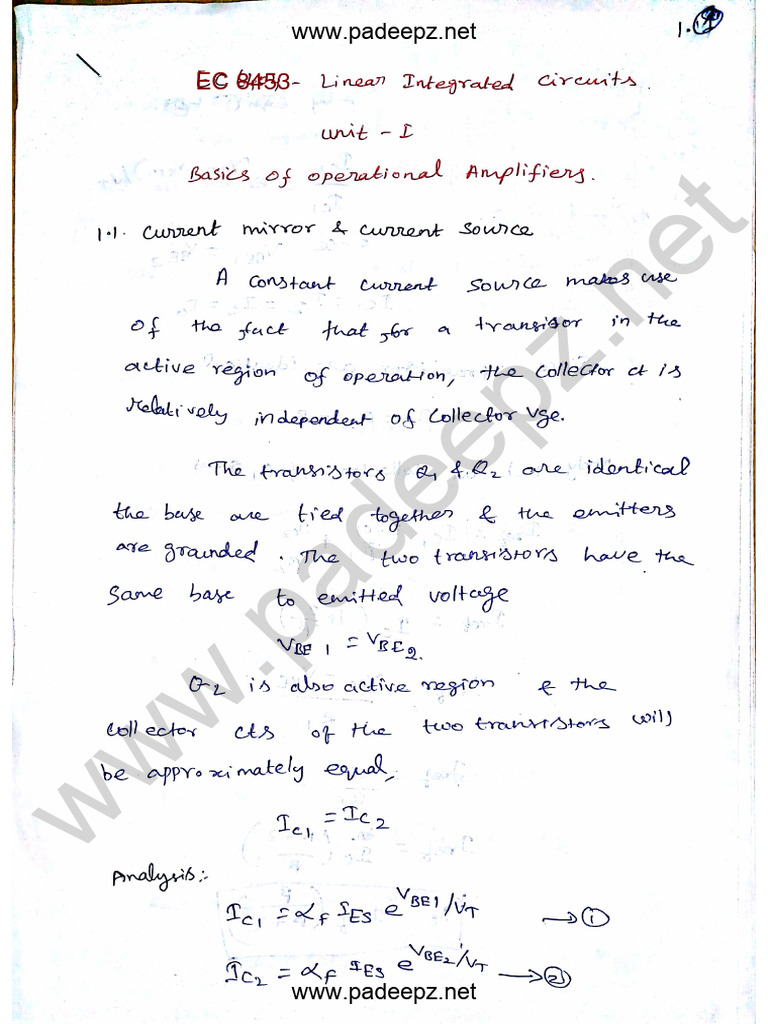 www.padeepz.net
EC 8453 - Linear Integrated Circuits.
Unit - I
Basics of operational Amplifiers.
1.1. Current mirror & current source
A constant current source makes use
of the fact that for a transistor in the
active region of operation, the collector ct is
relatively independent of Collector Vge.
The transistors Q1 & Q2 are identical
the base are tied together & the emitters
are grounded. The two transistors have the
same base to emitted voltage
VBE1 = VBE2.
Q2 is also active region & the
collector cts of the two transistors will
be approximately equal,
IC1 = IC2
Analysis:-
IC1 = αF IES e^VBE1/VT → ①
IC2 = αF IES e^VBE2/VT → ②
www.padeepz.net
www.padeepz.net